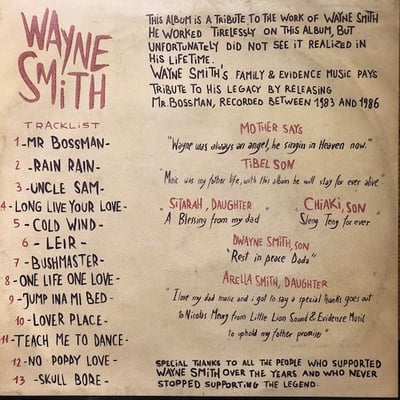 WAYNE
SMITH
TRACKLIST
1-MR BOSSMAN-
2-RAIN RAIN-
3-UNCLE SAM-
4-LONG LIVE YOUR LOVE-
5-COLD WIND-
6-LEIR-
7-BUSHMASTER-
8-ONE LIFE ONE LOVE-
9-JUMP INA MI BED-
10-LOVER PLACE-
11-TEACH ME TO DANCE-
12-NO POPPY LOVE-
13-SKULL BORE-
THIS ALBUM IS A TRIBUTE TO THE WORK OF WAYNE SMITH
HE WORKED TIRELESSLY ON THIS ALBUM, BUT
UNFORTUNATELY DID NOT SEE IT REALIZED IN
HIS LIFETIME.
WAYNE SMITH'S FAMILY & EVIDENCE MUSIC PAYS
TRIBUTE TO HIS LEGACY BY RELEASING
MR.BOSSMAN, RECORDED BETWEEN 1983 AND 1986
MOTHER SAYS
"Wayne was always an angel, he singin in Heaven now."
TIBEL SON
"Music was my father life, with this album he will stay for ever alive"
SITARAH, DAUGHTER
A Blessing from my dad
CHIAKI, SON
Sleng Teng for ever
DWAYNE SMITH, SON
"Rest in peace Dada"
ARELLA SMITH, DAUGHTER
"I love my dad music and i got to say a special thanks goes out
to Nicolas Maury from Little Lion Sound & Evidence Music
to uphold my father promises"
SPECIAL THANKS TO ALL THE PEOPLE WHO SUPPORTED
WAYNE SMITH OVER THE YEARS AND WHO NEVER
STOPPED SUPPORTING THE LEGEND.